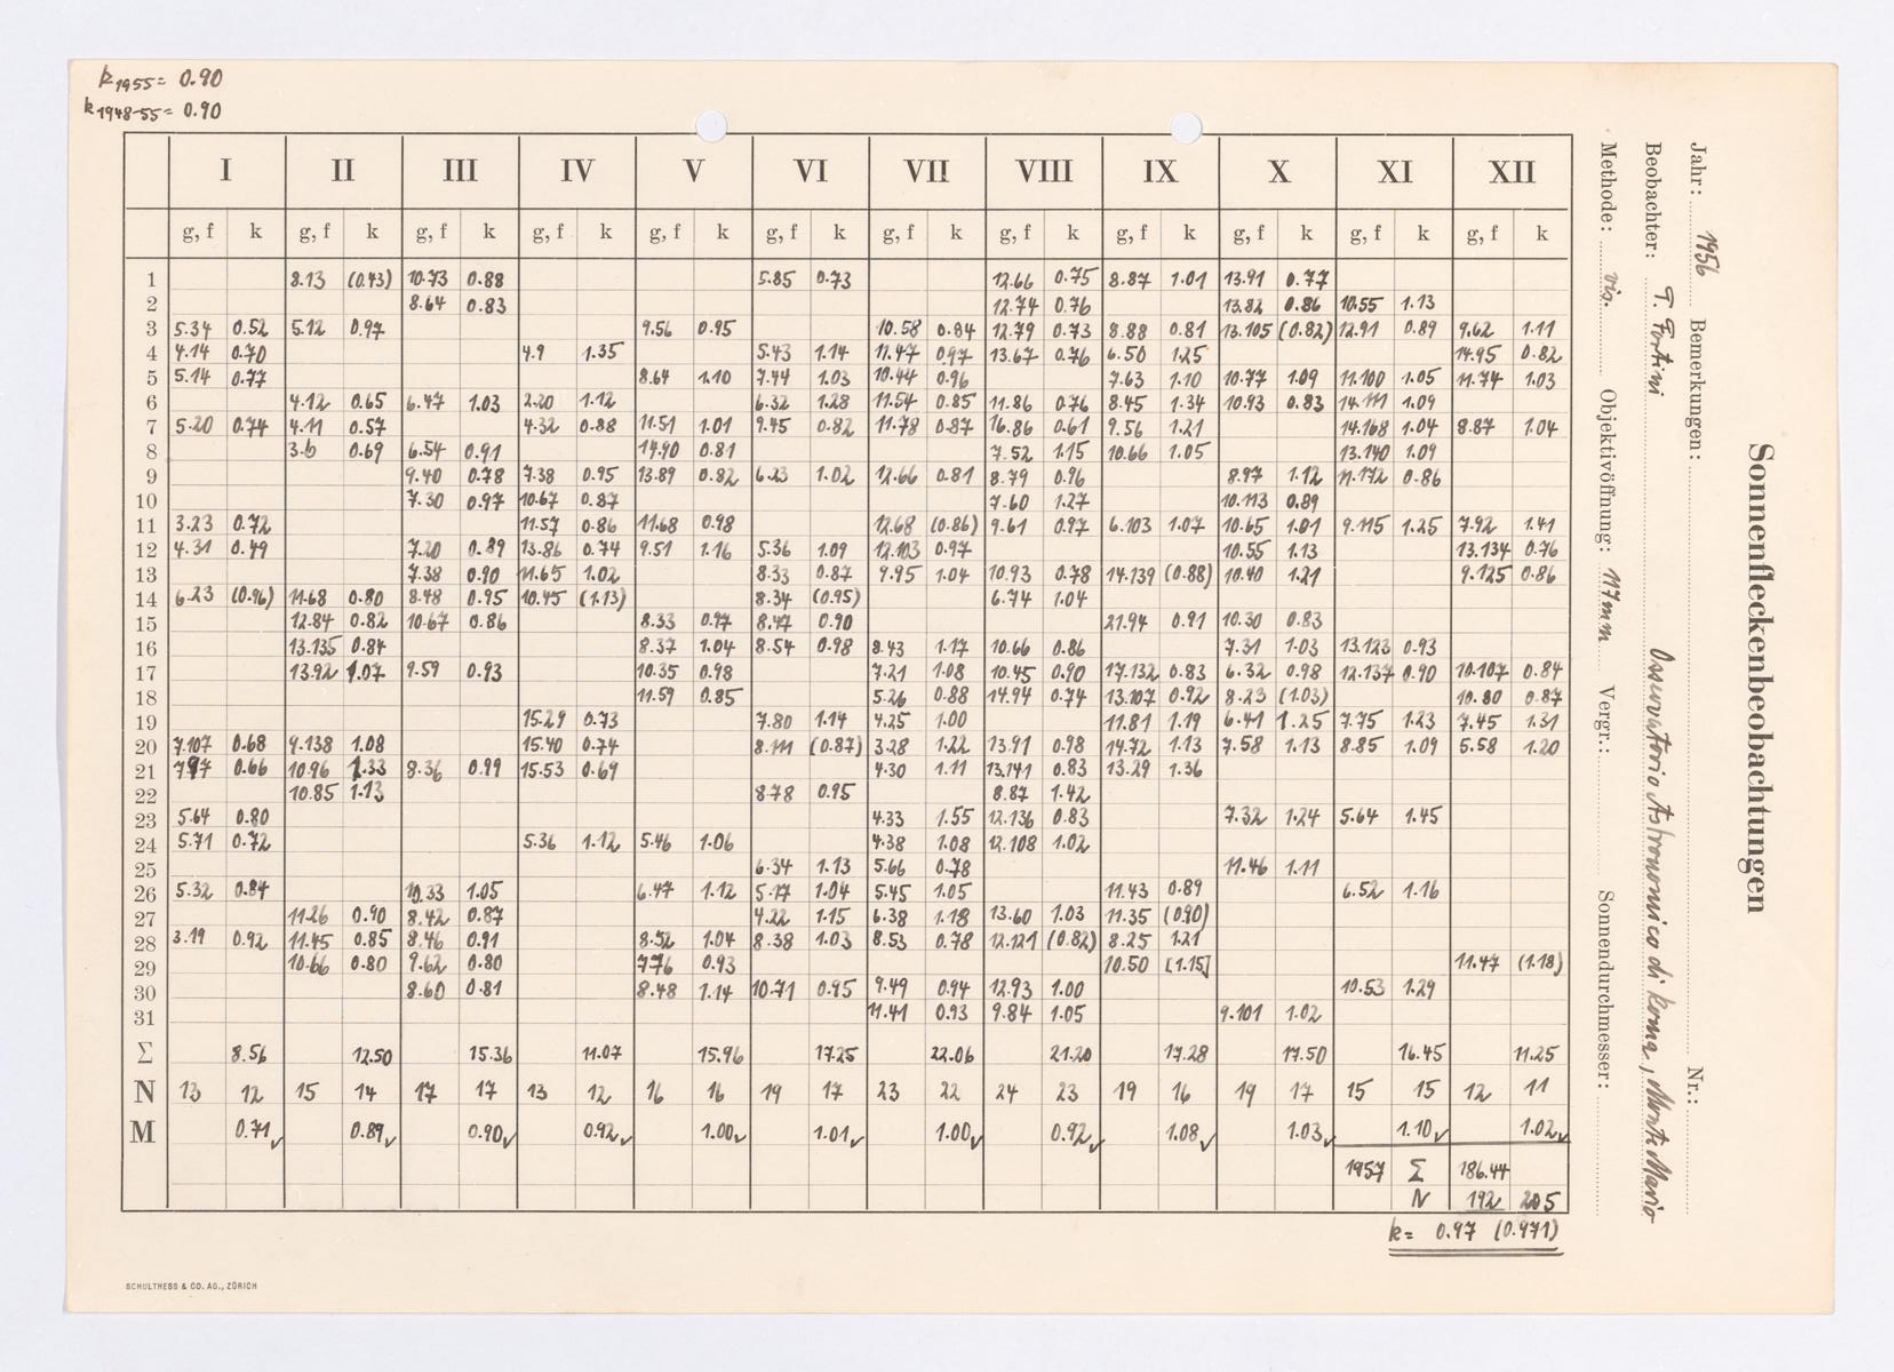 k1955= 0.90
k1948-55= 0.90
I II III IV V VI VII VIII IX X XI XII
g, f k g, f k g, f k g, f k g, f k g, f k g, f k g, f k g, f k g, f k g, f k g, f k
1 8.13 (0.43) 10.73 0.88 5.85 0.73 12.66 0.75 8.87 1.01 13.91 0.77
2 8.64 0.83 12.74 0.76 13.82 0.86 10.55 1.13
3 5.34 0.52 5.12 0.97 9.56 0.95 10.58 0.84 12.79 0.73 8.88 0.81 13.105 (0.82) 12.91 0.89 9.62 1.11
4 4.14 0.70 4.9 1.35 5.43 1.14 11.47 0.97 13.67 0.76 6.50 1.25 14.95 0.82
5 5.14 0.77 8.64 1.10 7.44 1.03 10.44 0.96 7.63 1.10 10.77 1.09 11.100 1.05 11.74 1.03
6 4.12 0.65 6.47 1.03 2.20 1.12 6.32 1.28 11.54 0.85 11.86 0.76 8.45 1.34 10.93 0.83 14.111 1.09
7 5.20 0.74 4.11 0.57 4.32 0.88 11.51 1.01 9.45 0.82 11.78 0.87 16.86 0.61 9.56 1.21 14.168 1.04 8.87 1.04
8 3.6 0.69 6.54 0.91 14.90 0.81 7.52 1.15 10.66 1.05 13.140 1.09
9 9.40 0.78 7.38 0.95 13.89 0.82 6.23 1.02 12.66 0.81 8.79 0.96 8.97 1.12 11.172 0.86
10 7.30 0.97 10.67 0.87 7.60 1.27 10.113 0.89
11 3.23 0.72 11.57 0.86 11.68 0.98 12.68 (0.86) 9.61 0.97 6.103 1.07 10.65 1.01 9.115 1.25 7.92 1.41
12 4.31 0.49 7.20 0.89 13.86 0.74 9.51 1.16 5.36 1.09 12.103 0.97 10.55 1.13 13.134 0.76
13 7.38 0.90 11.65 1.02 8.33 0.87 9.95 1.04 10.93 0.78 14.139 (0.88) 10.40 1.21 9.125 0.86
14 6.23 (0.96) 11.68 0.80 8.48 0.95 10.45 (1.13) 8.34 (0.95) 6.74 1.04
15 12.84 0.82 10.67 0.86 8.33 0.97 8.47 0.90 21.94 0.91 10.30 0.83
16 13.135 0.84 8.37 1.04 8.54 0.98 8.43 1.17 10.66 0.86 7.31 1.03 13.123 0.93
17 13.92 1.07 9.59 0.93 10.35 0.98 7.21 1.08 10.45 0.90 17.132 0.83 6.32 0.98 12.137 0.90 10.107 0.84
18 11.59 0.85 5.26 0.88 14.94 0.74 13.107 0.92 8.23 (1.03) 10.80 0.87
19 15.29 0.73 7.80 1.14 4.25 1.00 11.81 1.19 6.41 1.25 7.75 1.23 7.45 1.31
20 7.107 0.68 9.138 1.08 15.40 0.74 8.111 (0.87) 3.28 1.22 13.91 0.98 14.72 1.13 7.58 1.13 8.85 1.09 5.58 1.20
21 7.97 0.66 10.96 1.33 8.36 0.99 15.53 0.69 4.30 1.11 13.141 0.83 13.29 1.36
22 10.85 1.13 8.78 0.95 8.87 1.42
23 5.64 0.80 4.33 1.55 12.136 0.83 7.32 1.24 5.64 1.45
24 5.71 0.72 5.36 1.12 5.46 1.06 4.38 1.08 12.108 1.02
25 6.34 1.13 5.66 0.78 11.46 1.11
26 5.32 0.84 10.33 1.05 6.47 1.12 5.17 1.04 5.45 1.05 11.43 0.89 6.52 1.16
27 11.26 0.90 8.42 0.87 4.22 1.15 6.38 1.18 13.60 1.03 11.35 (0.90)
28 3.19 0.92 11.45 0.85 8.46 0.91 8.52 1.04 8.38 1.03 8.53 0.78 12.121 (0.82) 8.25 1.21
29 10.66 0.80 9.62 0.80 7.76 0.93 10.50 [1.15] 11.47 (1.18)
30 8.60 0.81 8.48 1.14 10.71 0.95 9.49 0.94 12.93 1.00 10.53 1.29
31 11.41 0.93 9.84 1.05 9.101 1.02
Σ 8.56 12.50 15.36 11.07 15.96 17.25 22.06 21.20 17.28 17.50 16.45 11.25
N 13 12 15 14 17 17 13 12 16 16 19 17 23 22 24 23 19 16 19 17 15 15 12 11
M 0.71✓ 0.89✓ 0.90✓ 0.92✓ 1.00✓ 1.01✓ 1.00✓ 0.92✓ 1.08✓ 1.03✓ 1.10✓ 1.02✓
1957 Σ 186.44
N 192 205
k= 0.97 (0.971)
SCHULTHESS & CO. AG., ZÜRICH
Sonnenfleckenbeobachtungen
Jahr: 1956 Bemerkungen: Nr.:
Beobachter: T. Fortini Osservatorio Astronomico di Roma, Monte Mario
Methode: vis. Objektivöffnung: 117mm Vergr.: Sonnendurchmesser: